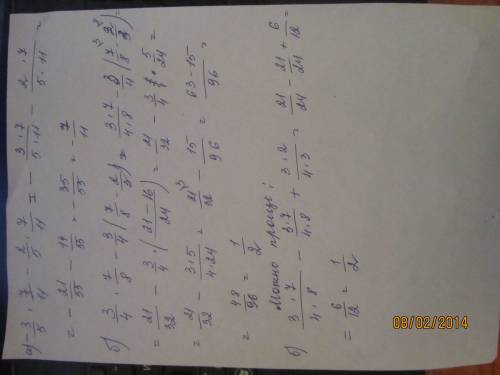 а) -3/5 · 7/11 - 2/5 · 7/11 = - 3·7/5·11 - 2·7/5·11 =
= - 21/55 - 14/55 = - 35/55 = - 7/11
б) 3/4 · 7/8 - 3/4 (7/8 - 2/3) = 3·7/4·8 - 3/4 (7/8 - 2/3) =
= 21/32 - 3/4 · (21-16/24) = 21/32 - 3/4 · 5/24 =
= 21/32 - 3·5/4·24 = 21/32 - 15/96 = 63-15/96 =
= 48/96 = 1/2
Можно проще:
б) 3·7/4·8 - 3·7/4·8 + 3·2/4·3 = 21/24 - 21/24 + 6/12 =
= 6/12 = 1/2
08/02/2014